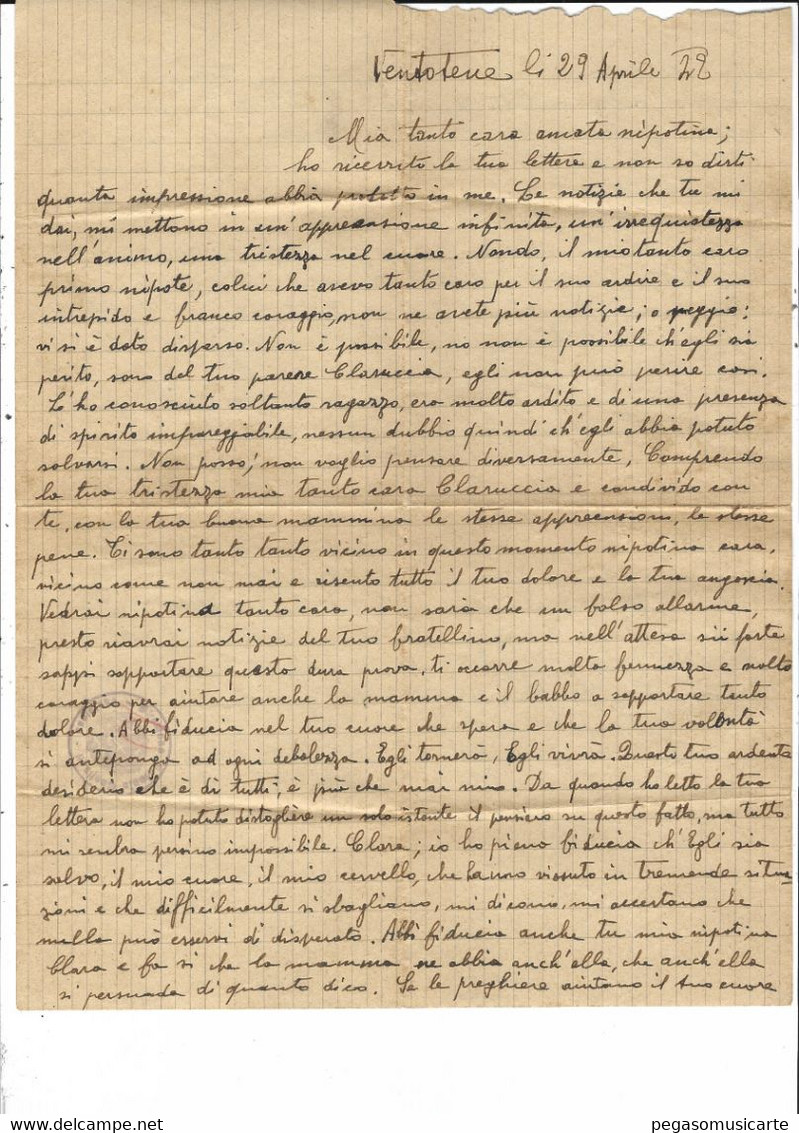 Ventotene li 29 Aprile 42
Mia tanto cara amata nipotina;
ho ricevuto la tua lettera e non so dirti
quanta impressione abbia potuto in me. Le notizie che tu mi
dai, mi mettono in un'apprensione infinita, un'irrequietezza
nell'animo, una tristezza nel cuore. Nando, il mio tanto caro
primo nipote, colui che avevo tanto caro per il suo ardire e il suo
intrepido e franco coraggio, non ne avete più notizie; o peggio:
vi si è dato disperso. Non è possibile, no non è possibile ch'egli sia
perito, sono del tuo parere Claruccia, egli non può perire così.
L'ho conosciuto soltanto ragazzo, era molto ardito e di una presenza
di spirito impareggiabile, nessun dubbio quindi ch'egli abbia potuto
salvarsi. Non posso, non voglio pensare diversamente, Comprendo
la tua tristezza mia tanto cara Claruccia e condivido con
te, con la tua buona mammina le stesse apprecensioni, le stesse
pene. Ti sono tanto tanto vicino in questo momento nipotina cara,
vicino come non mai e risento tutto il tuo dolore e la tua angoscia.
Vedrai nipotina tanto cara, non sarà che un falso allarme,
presto riavrai notizie del tuo fratellino, ma nell'attesa sii forte
sappi sopportare questa dura prova, ti occorre molta fermezza e molto
coraggio per aiutare anche la mamma e il babbo a sopportare tanto
dolore. Abbi fiducia nel tuo cuore che spera e che la tua volontà
si anteponga ad ogni debolezza. Egli tornerà, Egli vivrà. Questo tuo ardente
desiderio che è di tutti, è più che mai mio. Da quando ho letto la tua
lettera non ho potuto distogliere un solo istante il pensiero su questo fatto, ma tutto
mi sembra persino impossibile. Clara; io ho piena fiducia ch'Egli sia
salvo, il mio cuore, il mio cervello, che hanno vissuto in tremende situa-
zioni e che difficilmente si sbagliano, mi dicono, mi accertano che
nulla può esservi di disperato. Abbi fiducia anche tu mia nipotina
Clara e fa si che la mamma ne abbia anch'ella, che anch'ella
si persuada di quanto dico. Se le preghiere aiutano il tuo cuore
pegasomusicarte